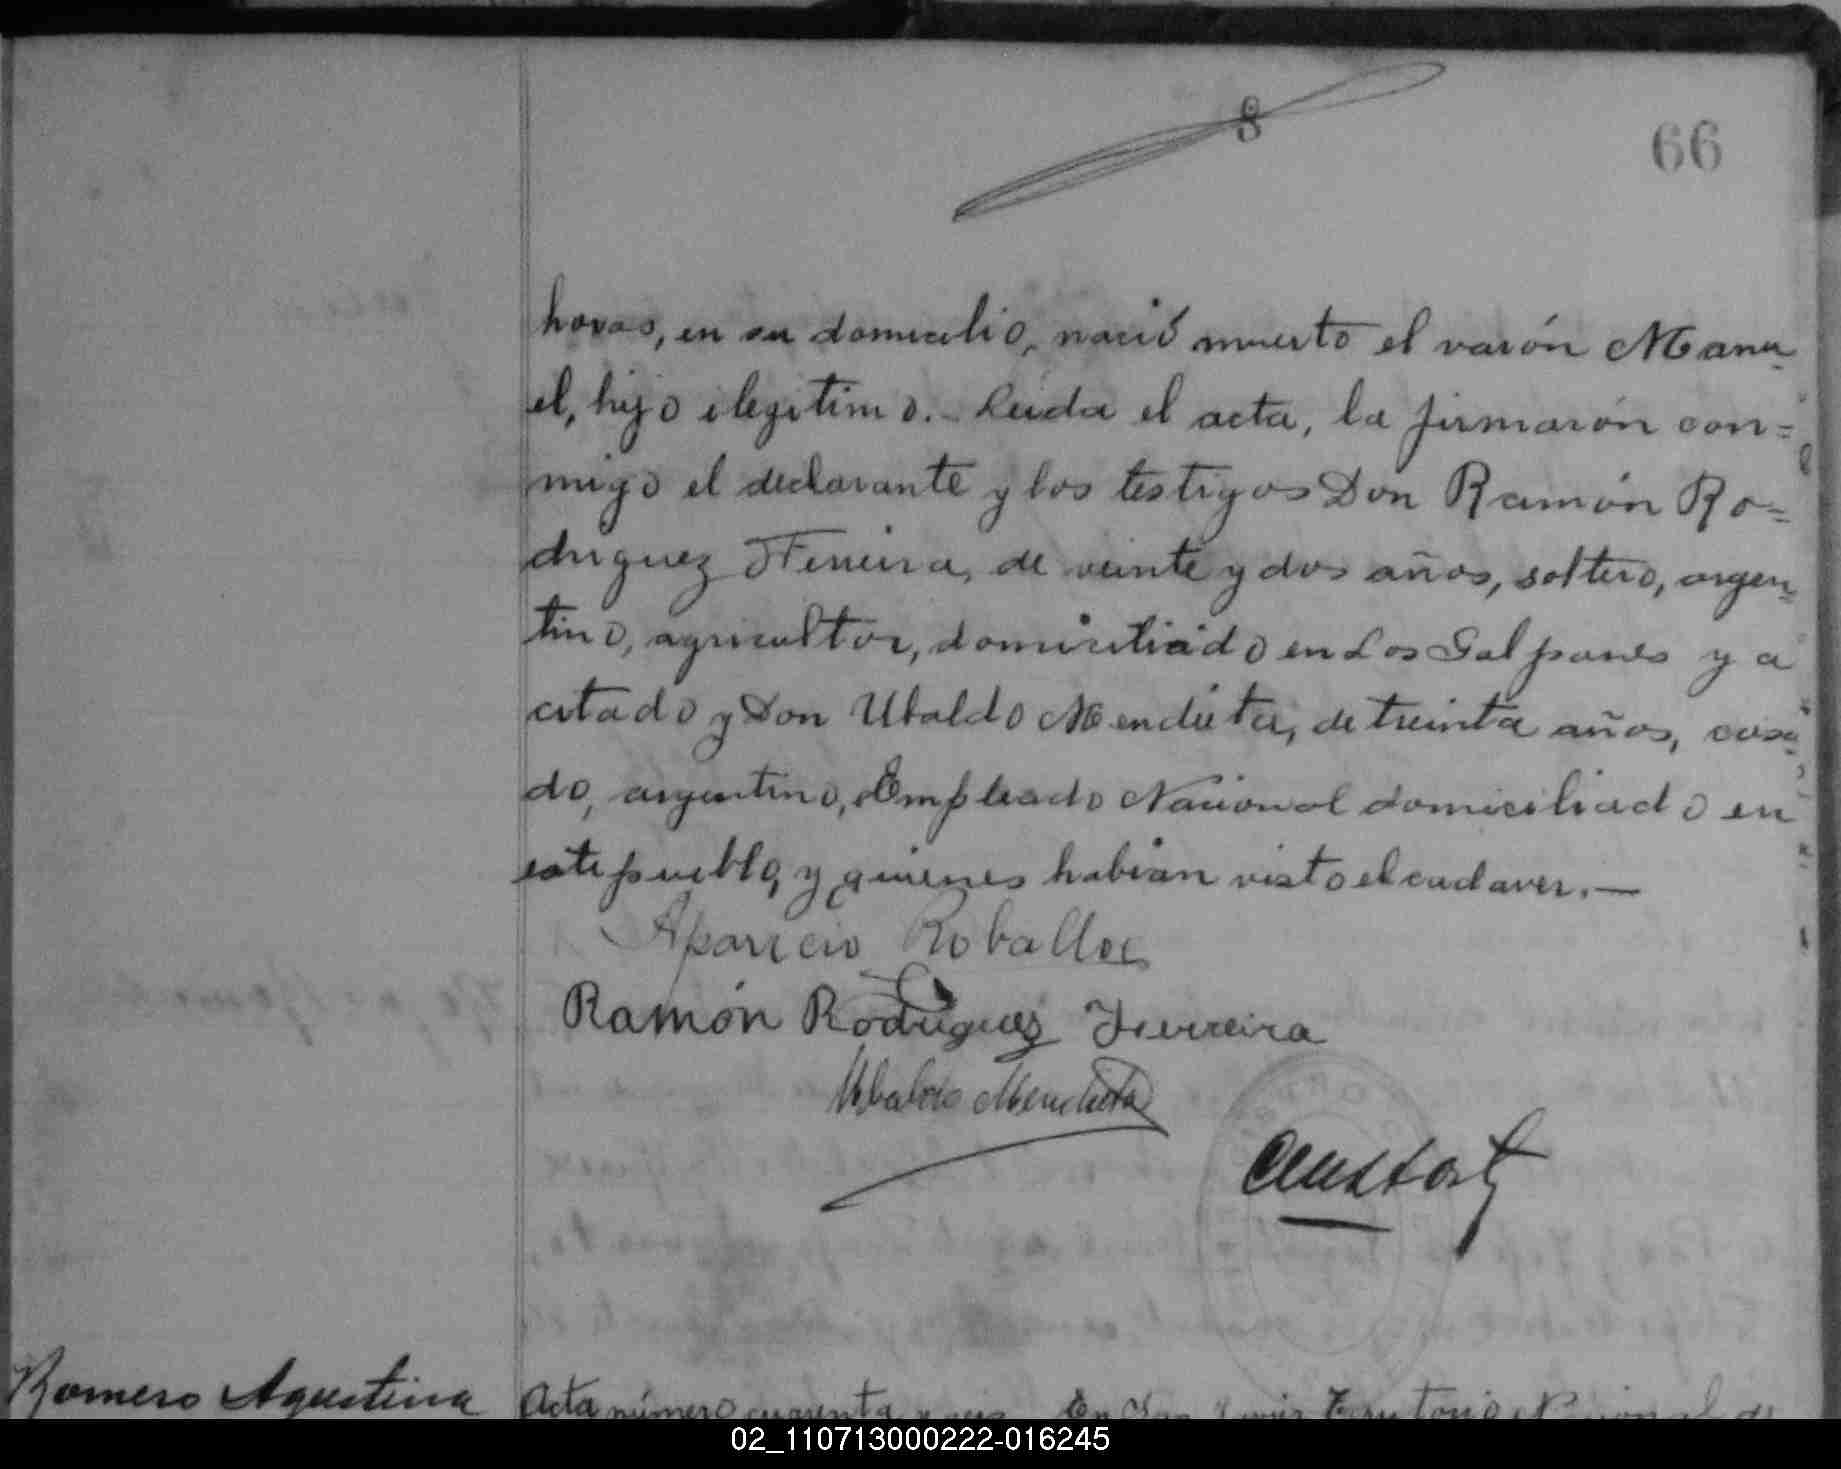 8
66
horas, en su domicilio, nació muerto el varón Manu
el, hijo ilegitimo.- Leida el acta, la firmarón con=
migo el declarante y los testigos Don Ramón Ro=
driguez Ferreira, de veinte y dos años, soltero, argen=
tino, agricultor, domiciliado en Los Galpones ya
citado y Don Ubaldo Mendieta, de treinta años, casa=
do, argentino, Empleado Nacional domiciliado en
este pueblo, y quienes habian visto el cadaver.—
Aparicio Roballos
Ramón Rodriguez Ferreira
Ubaldo Mendieta
Romero Agustina
Acta número cuarenta y seis En San Territorio Nacional de
02_110713000222-016245